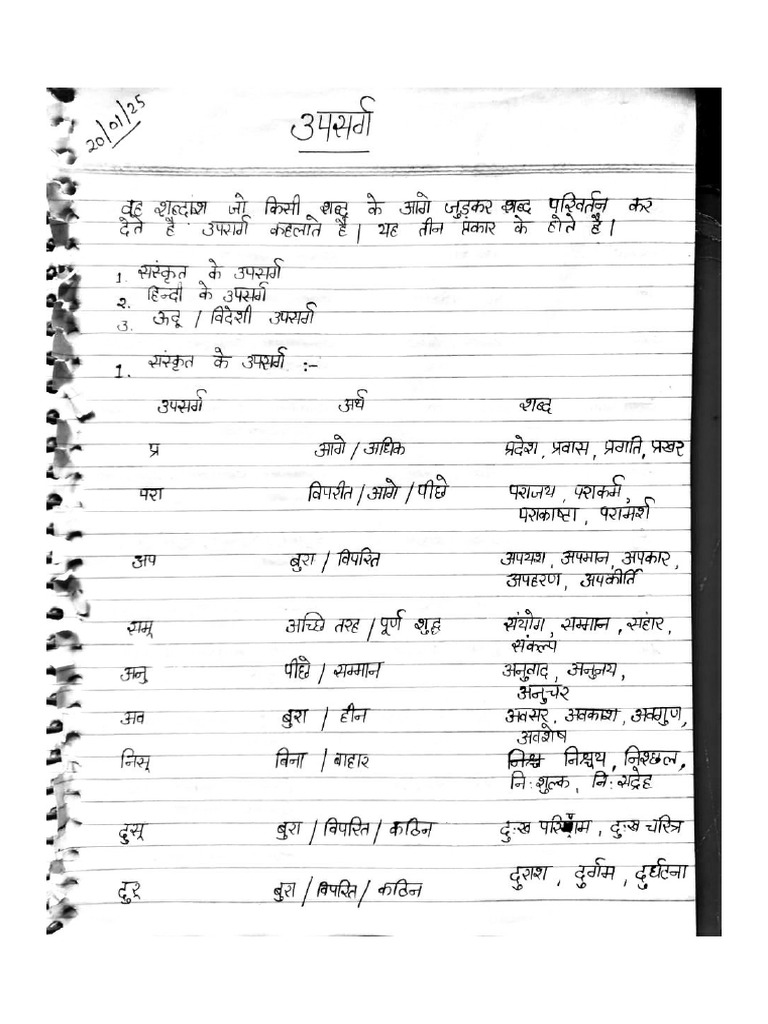 20/01/25
उपसर्ग
वह शब्दांश जो किसी शब्द के आगे जुड़कर शब्द परिवर्तन कर
देते है उपसर्ग कहलाते है। यह तीन प्रकार के होते है।
1. संस्कृत के उपसर्ग
2. हिन्दी के उपसर्ग
3. ऊदू / विदेशी उपसर्ग
1. संस्कृत के उपसर्ग :-
उपसर्ग अर्थ शब्द
प्र आगे / अधिक प्रदेश, प्रवास, प्रगति, प्रखर
परा विपरीत / आगे / पीछे पराजय, पराकर्म,
पराकाष्टा, परामर्श
अप बुरा / विपरित अपयश, अपमान, अपकार,
अपहरण, अपकीर्ति
सम् अच्छि तरह / पूर्ण शुद्ध संयोग, सम्मान, संहार,
संकल्प
अनु पीछे / सम्मान अनुवाद, अनुनय,
अनुचर
अव बुरा / हीन अवसर, अवकाश, अवगुण,
अवशेष
निस् बिना / बाहार निश्चय, निश्छल,
नि:शुल्क, नि:सद्रेह
दुस् बुरा / विपरित / कठिन दु:ख परिणाम, दु:ख चरित्र
दुर् बुरा / विपरित / कठिन दुराश, दुर्गम, दुर्घटना